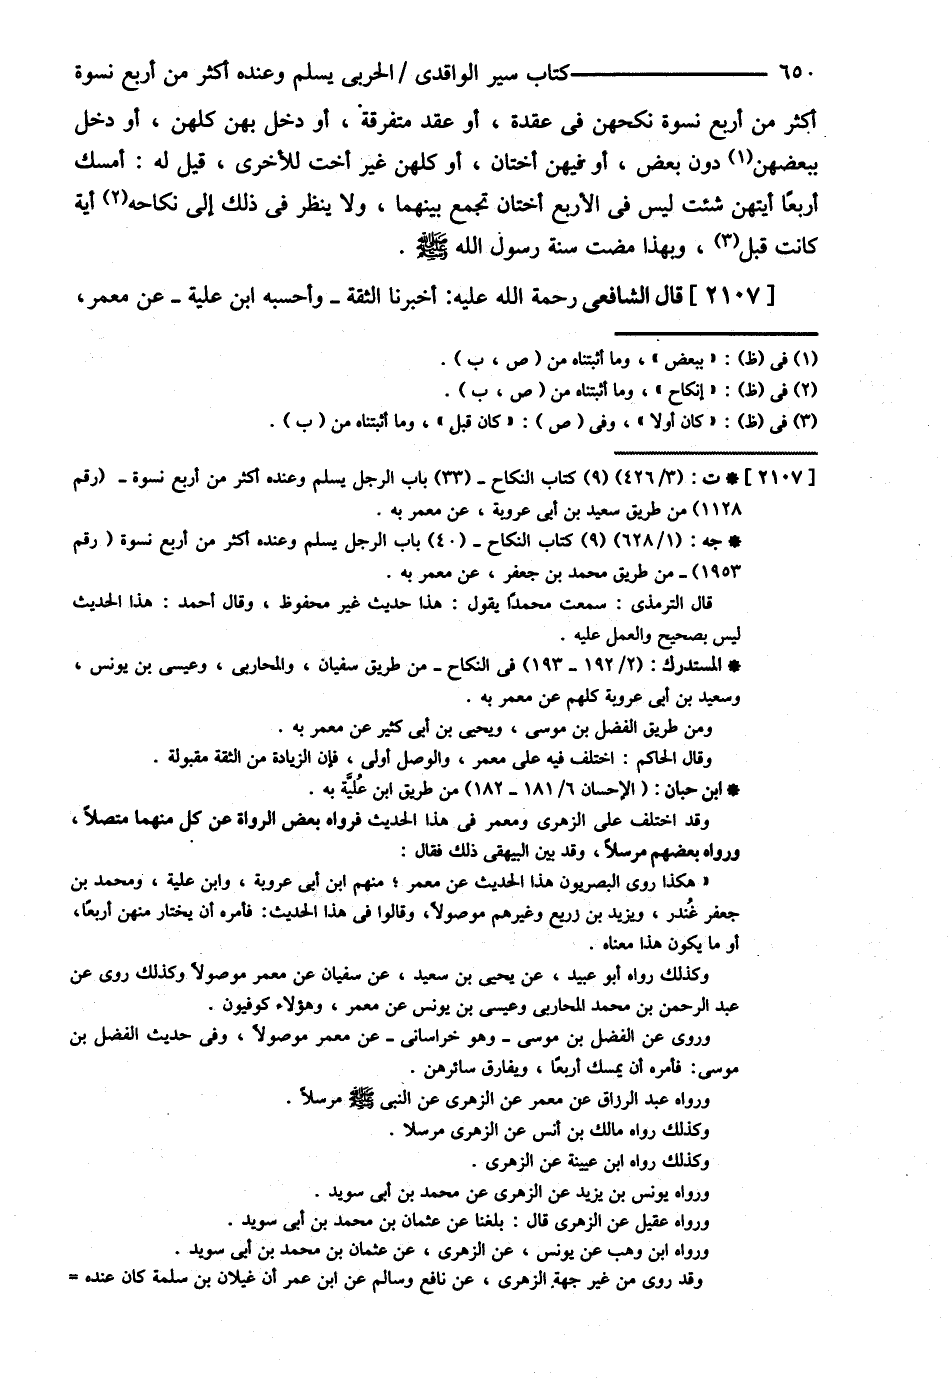 ٦٥٠ ــــــــــــــــــــــــ كتاب سير الواقدى / الحربى يسلم وعنده أكثر من أربع نسوة
أكثر من أربع نسوة نكحهن فى عقدة ، أو عقد متفرقة ، أو دخل بهن كلهن ، أو دخل
ببعضهن(١) دون بعض ، أو فيهن أختان ، أو كلهن غير أخت للأخرى ، قيل له : أمسك
أربعًا أيتهن شئت ليس فى الأربع أختان تجمع بينهما ، ولا ينظر فى ذلك إلى نكاحه(٢) أية
كانت قبل(٣) ، وبهذا مضت سنة رسول الله ﷺ .
[ ٢١٠٧ ] قال الشافعى رحمة الله عليه: أخبرنا الثقة ـ وأحسبه ابن علية ـ عن معمر،
(١) فى (ظ) : « ببعض » ، وما أثبتناه من ( ص ، ب ) .
(٢) فى (ظ) : « إنكاح » ، وما أثبتناه من ( ص ، ب ) .
(٣) فى (ظ) : « كان أولا » ، وفى ( ص ) : « كان قبل » ، وما أثبتناه من ( ب ) .
[ ٢١٠٧ ] * ت : (٣/ ٤٢٦) (٩) كتاب النكاح ـ (٣٣) باب الرجل يسلم وعنده أكثر من أربع نسوة ـ (رقم
١١٢٨) من طريق سعيد بن أبى عروبة ، عن معمر به .
* جه : (١/ ٦٢٨) (٩) كتاب النكاح ـ (٤٠) باب الرجل يسلم وعنده أكثر من أربع نسوة ( رقم
١٩٥٣) ـ من طريق محمد بن جعفر ، عن معمر به .
قال الترمذى : سمعت محمدًا يقول : هذا حديث غير محفوظ ، وقال أحمد : هذا الحديث
ليس بصحيح والعمل عليه .
* المستدرك : (٢/ ١٩٢ ـ ١٩٣) فى النكاح ـ من طريق سفيان ، والمحاربى ، وعيسى بن يونس ،
وسعيد بن أبى عروبة كلهم عن معمر به .
ومن طريق الفضل بن موسى ، ويحيى بن أبى كثير عن معمر به .
وقال الحاكم : اختلف فيه على معمر ، والوصل أولى ، فإن الزيادة من الثقة مقبولة .
* ابن حبان : ( الإحسان ٦/ ١٨١ ـ ١٨٢) من طريق ابن عُليَّة به .
وقد اختلف على الزهرى ومعمر فى هذا الحديث فرواه بعض الرواة عن كل منهما متصلاً ،
ورواه بعضهم مرسلاً ، وقد بين البيهقى ذلك فقال :
« هكذا روى البصريون هذا الحديث عن معمر ؛ منهم ابن أبى عروبة ، وابن علية ، ومحمد بن
جعفر غُندر ، ويزيد بن زريع وغيرهم موصولاً، وقالوا فى هذا الحديث: فأمره أن يختار منهن أربعًا،
أو ما يكون هذا معناه .
وكذلك رواه أبو عبيد ، عن يحيى بن سعيد ، عن سفيان عن معمر موصولاً وكذلك روى عن
عبد الرحمن بن محمد المحاربى وعيسى بن يونس عن معمر ، وهؤلاء كوفيون .
وروى عن الفضل بن موسى ـ وهو خراسانى ـ عن معمر موصولاً ، وفى حديث الفضل بن
موسى: فأمره أن يمسك أربعًا ، ويفارق سائرهن .
ورواه عبد الرزاق عن معمر عن الزهرى عن النبى ﷺ مرسلاً .
وكذلك رواه مالك بن أنس عن الزهرى مرسلا .
وكذلك رواه ابن عيينة عن الزهرى .
ورواه يونس بن يزيد عن الزهرى عن محمد بن أبى سويد .
ورواه عقيل عن الزهرى قال : بلغنا عن عثمان بن محمد بن أبى سويد .
ورواه ابن وهب عن يونس ، عن الزهرى ، عن عثمان بن محمد بن أبى سويد .
وقد روى من غير جهة الزهرى ، عن نافع وسالم عن ابن عمر أن غيلان بن سلمة كان عنده =